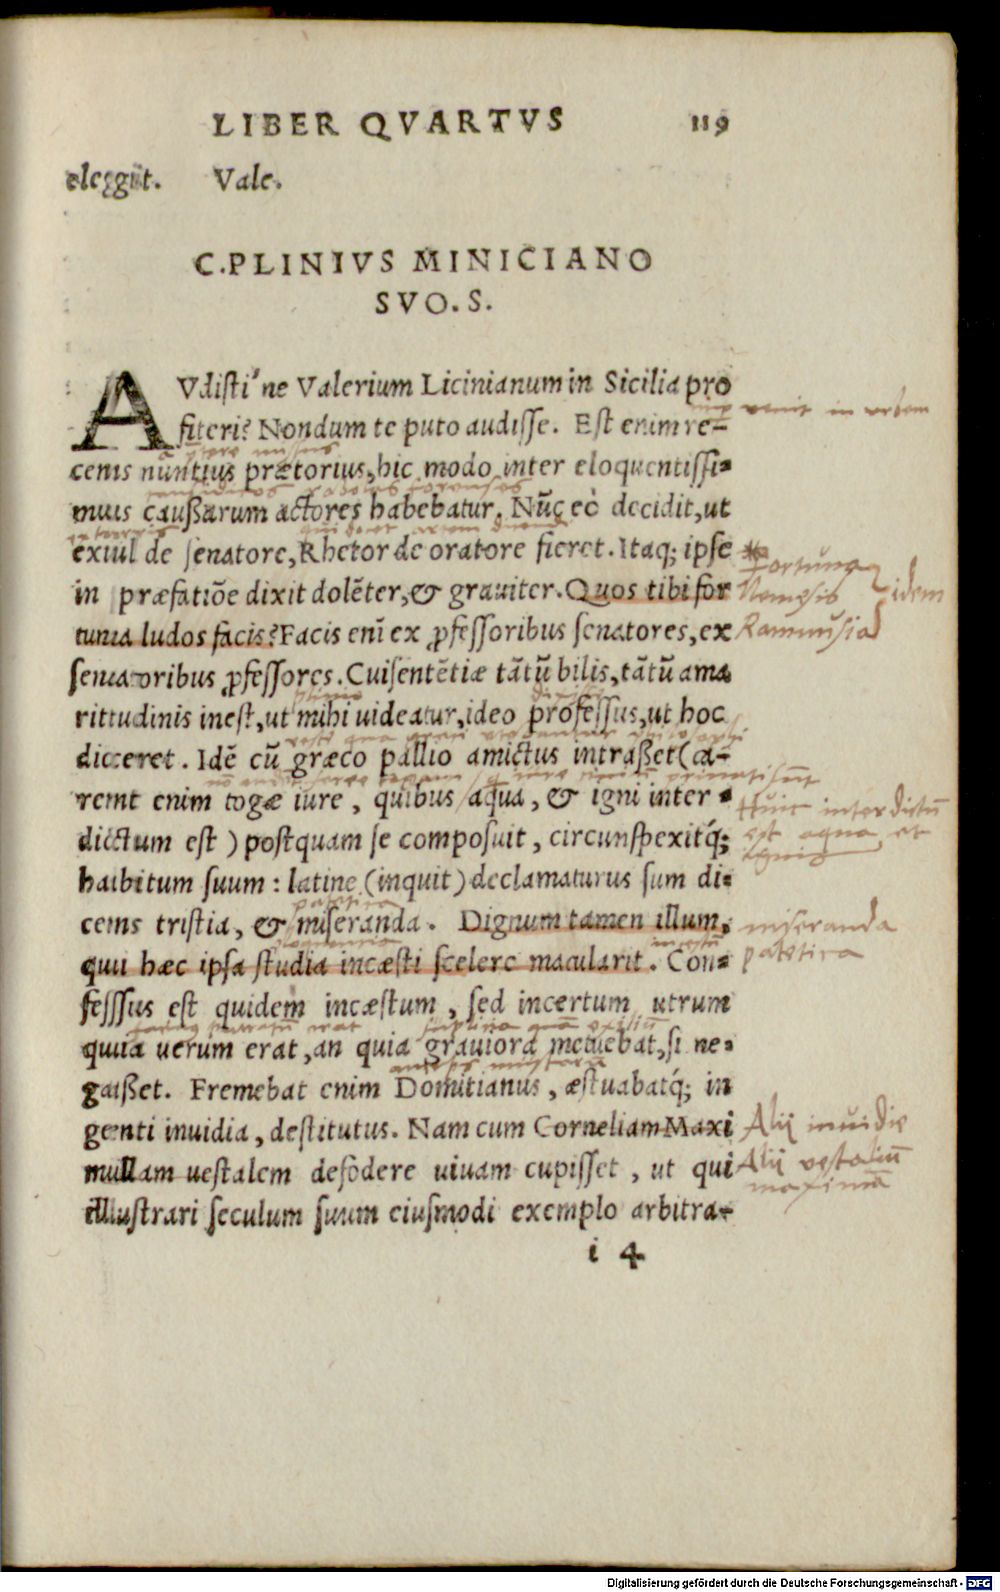 LIBER QVARTVS 119
eleggūt. Vale.
C. PLINIVS MINICIANO
SVO. S.
AVdisti'ne Valerium Licinianum in Sicilia pro
fiteri? Nondum te puto audisse. Est enim re-
venit in urbem
cens nuntius prætorius, hic modo inter eloquentissi-
mus caußarum actores habebatur. Nūc eò decidit, ut
exiul de senatore, Rhetor de oratore fieret. Itaq; ipse
in præfatiōe dixit dolēter, & grauiter. Quos tibi for
Fortuna
Nemesis
Ramnusia
idem
tuna ludos facis? Facis enī ex ꝓfessoribus senatores, ex
senatoribus ꝓfessores. Cui sentētiæ tātū bilis, tātū ama
rittudinis inest, ut mihi uideatur, ideo professus, ut hoc
diceret. Idē cū græco pallio amictus intraßet (ca-
rent enim togæ iure, quibus aqua, & igni inter-
Huic interdictū
est aqua et
ignis
dictum est) postquam se composuit, circunspexitq́;
habitum suum: latine (inquit) declamaturus sum di-
patetica
cens tristia, & miseranda. Dignum tamen illum,
miseranda
patetica
qui hæc ipsa studia incæsti scelere macularit. Con-
fessus est quidem incæstum, sed incertum utrum
quia uerum erat, an quia grauiora metuebat, si ne-
gaßet. Fremebat enim Domitianus, æstuabatq́; in
genti inuidia, destitutus. Nam cum Corneliam Maxi
Alij inuidie
mullam uestalem defodere uiuam cupisset, ut qui
Alij vestaliū
maximā
illustrari seculum suum eiusmodi exemplo arbitra-
i 4
Digitalisierung gefördert durch die Deutsche Forschungsgemeinschaft - DFG